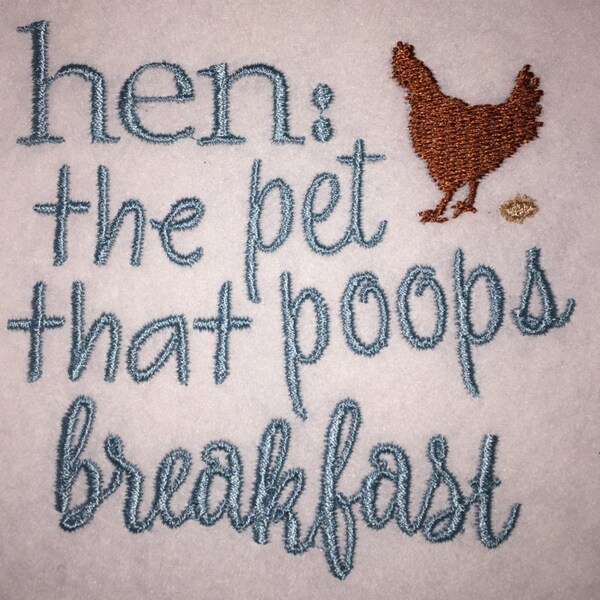 hen:
the pet
that poops
breakfast